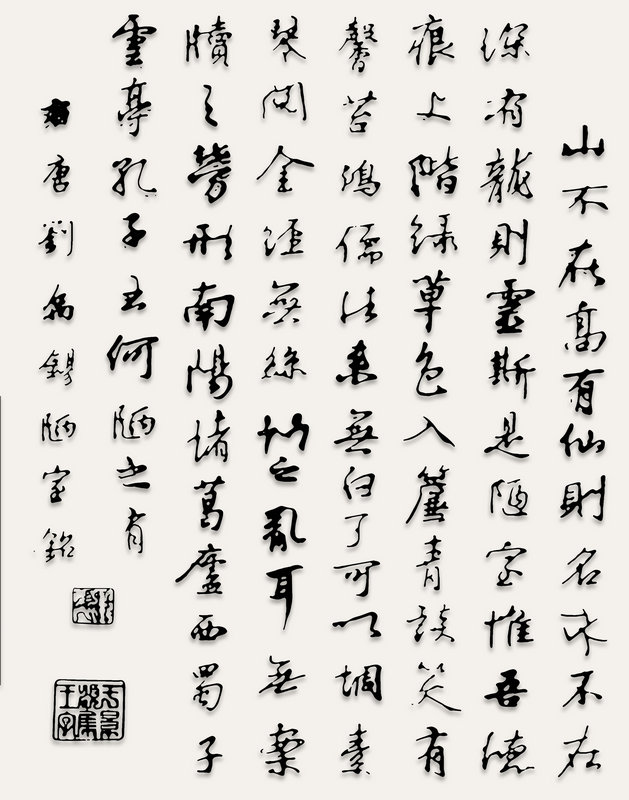 山不在高有仙則名水不在
深有龍則靈斯是陋室惟吾德
痕上階綠草色入簾青談笑有
馨苔鴻儒往來無白丁可以調素
琴閱金經無絲竹之亂耳無案
牘之勞形南陽諸葛廬西蜀子
雲亭孔子云何陋之有
唐劉禹錫陋室銘